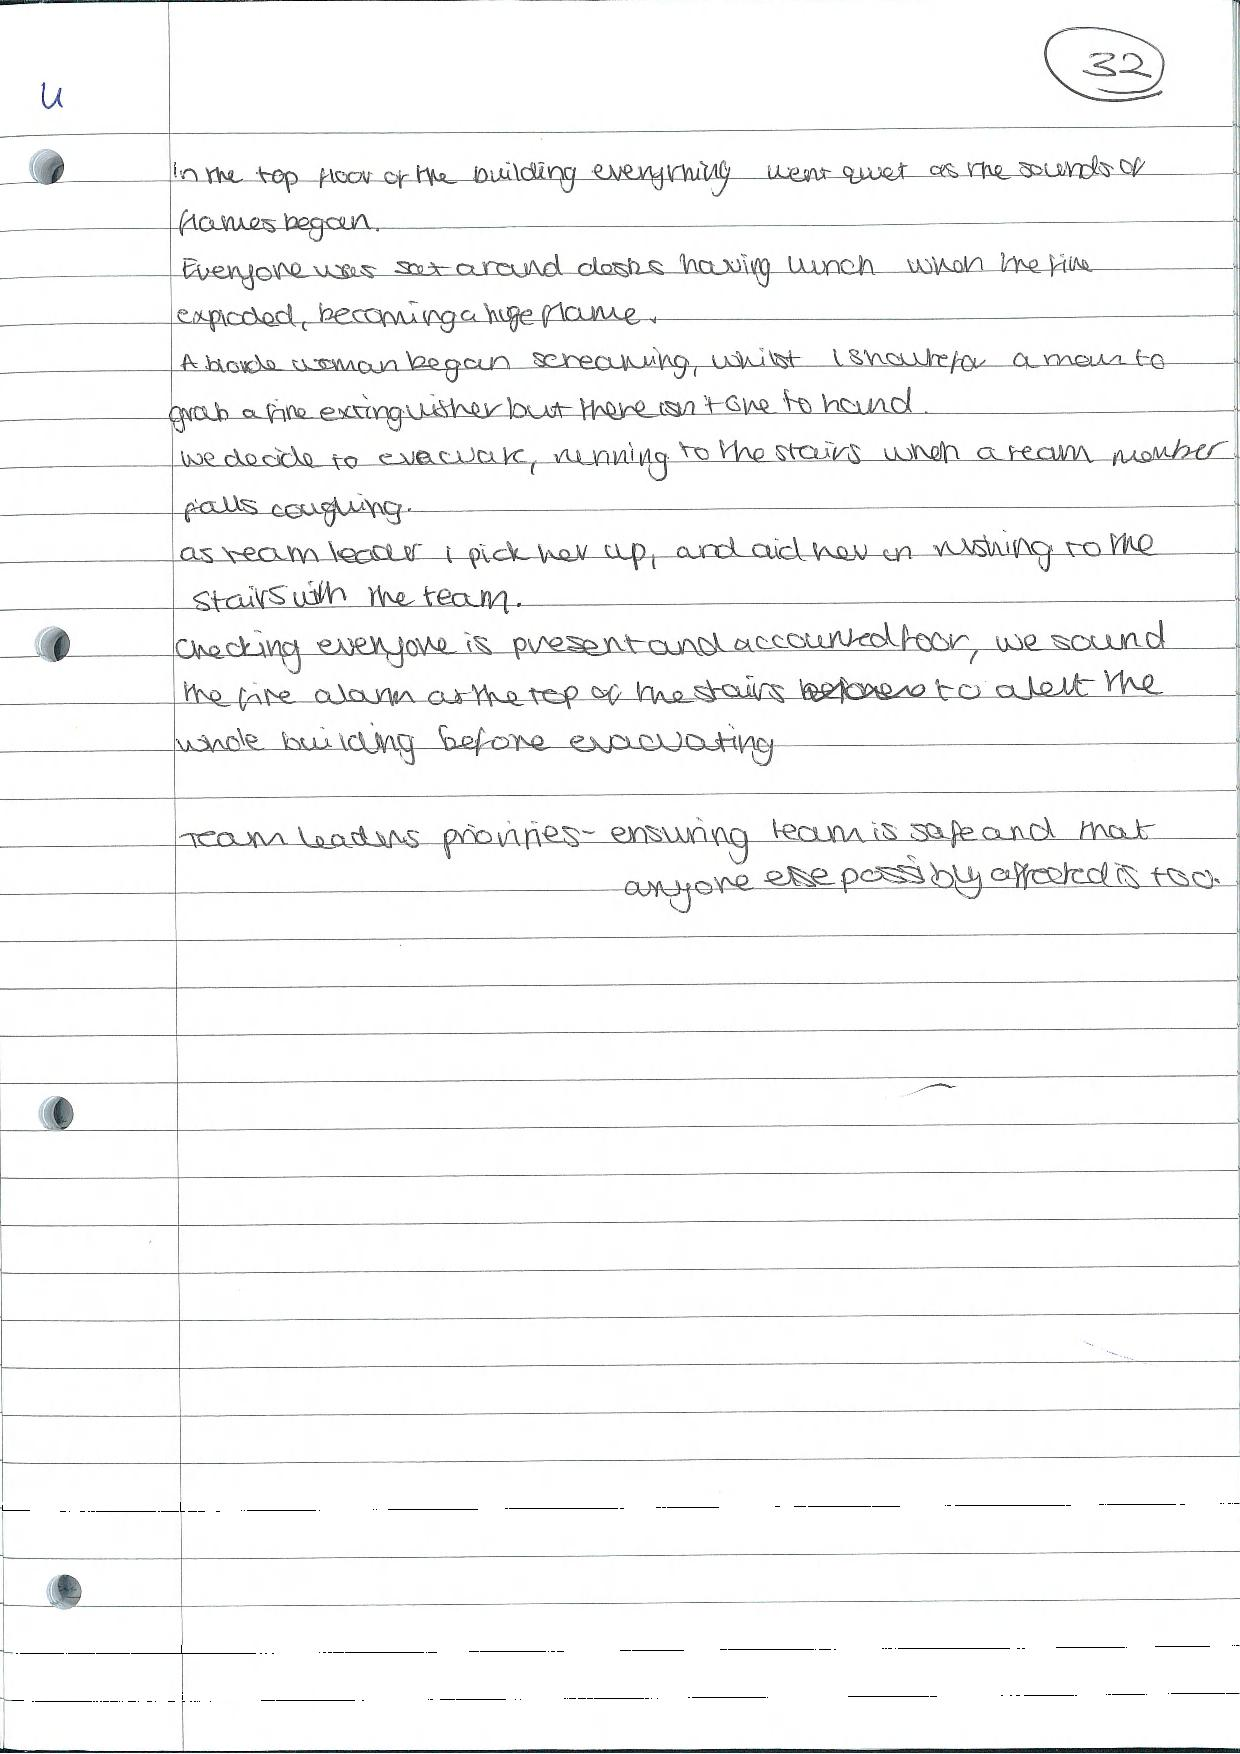 32
U
In the top floor of the building everything went quiet as the sounds of
flames began.
Everyone was sat around desks having lunch when the fire
exploded, becoming a huge flame.
A blonde woman began screaming, whilst I shout for a man to
grab a fire extinguisher but there isn't one to hand.
we decide to evacuate, running to the stairs when a team member
falls coughing.
as team leader i pick her up, and aid her in rushing to the
stairs with the team.
Checking everyone is present and accounted for, we sound
the fire alarm at the top of the stairs to alert the
whole building before evacuating
Team leaders priorities - ensuring team is safe and that
anyone else possibly affected is too.